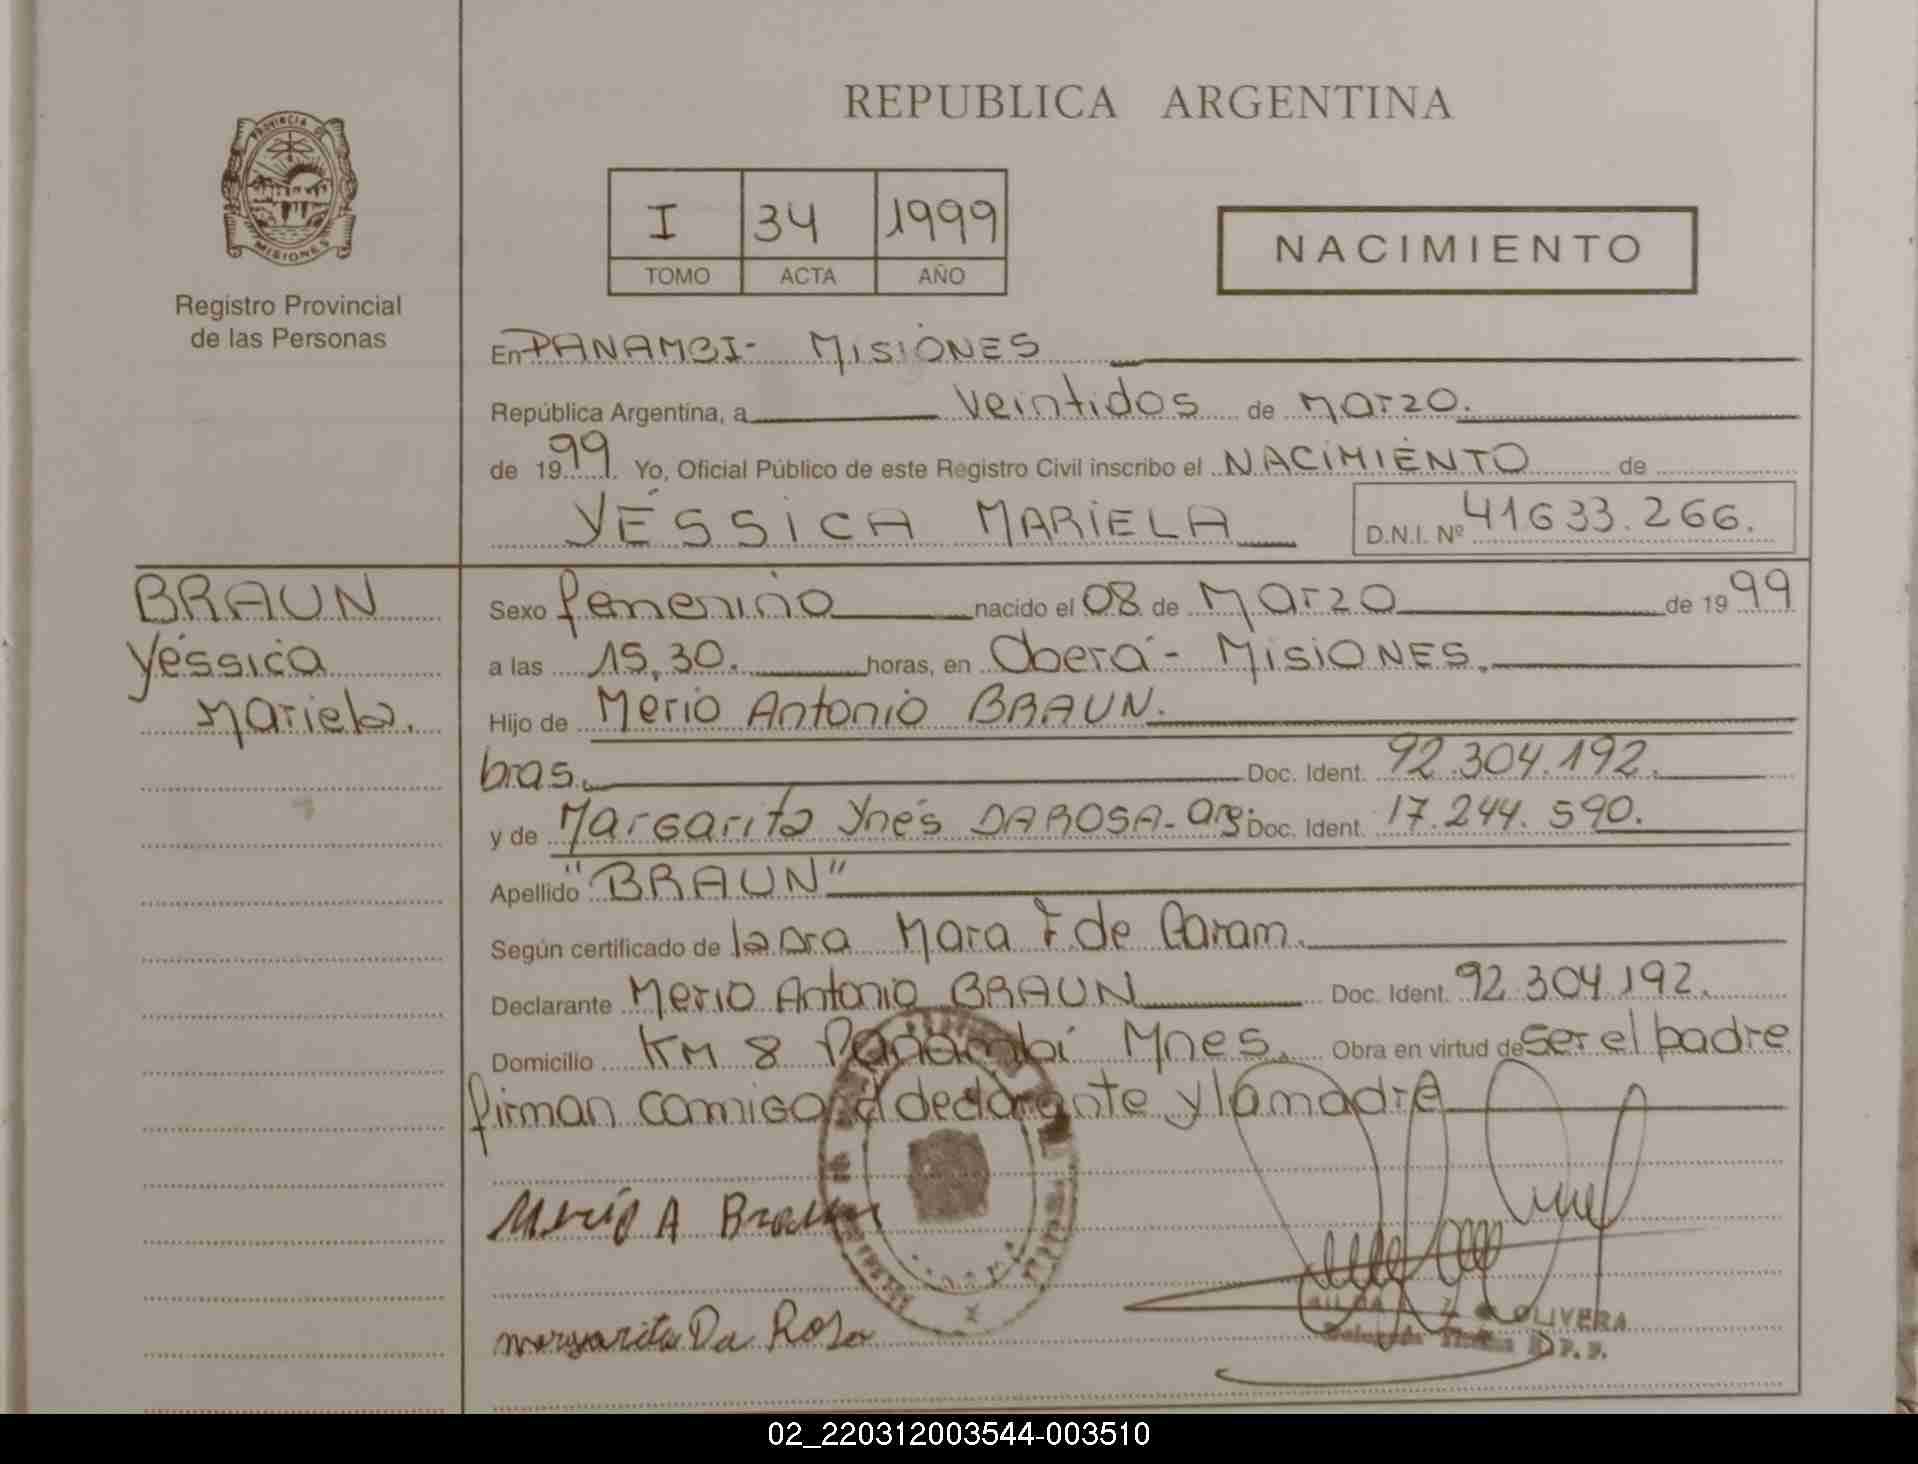 REPUBLICA ARGENTINA
PROVINCIA DE
MISIONES
Registro Provincial
de las Personas
I 34 1999
TOMO ACTA AÑO
NACIMIENTO
En PANAMBI- MISIONES
República Argentina, a veintidos de marzo.
de 1999. Yo, Oficial Público de este Registro Civil inscribo el NACIMIENTO de
YÉSSICA MARIELA D.N.I. Nº 41633.266.
BRAUN
Yéssica
Mariela.
Sexo femenino nacido el 08 de Marzo de 1999
a las 15,30. horas, en Oberá- MISIONES.
Hijo de Merio Antonio BRAUN.
bras. Doc. Ident. 92.304.192.
y de Margarita Ynés DAROSA-arg. Doc. Ident. 17.244.590.
Apellido "BRAUN"
Según certificado de la Dra Mara F de Caram.
Declarante Merio Antonio BRAUN Doc. Ident. 92.304.192.
Domicilio KM 8 Panambí Mnes. Obra en virtud de ser el padre
firman comigo el declarante y la madre
Merio A Braun
margarita Da Rosa
OLIVERA
02_220312003544-003510